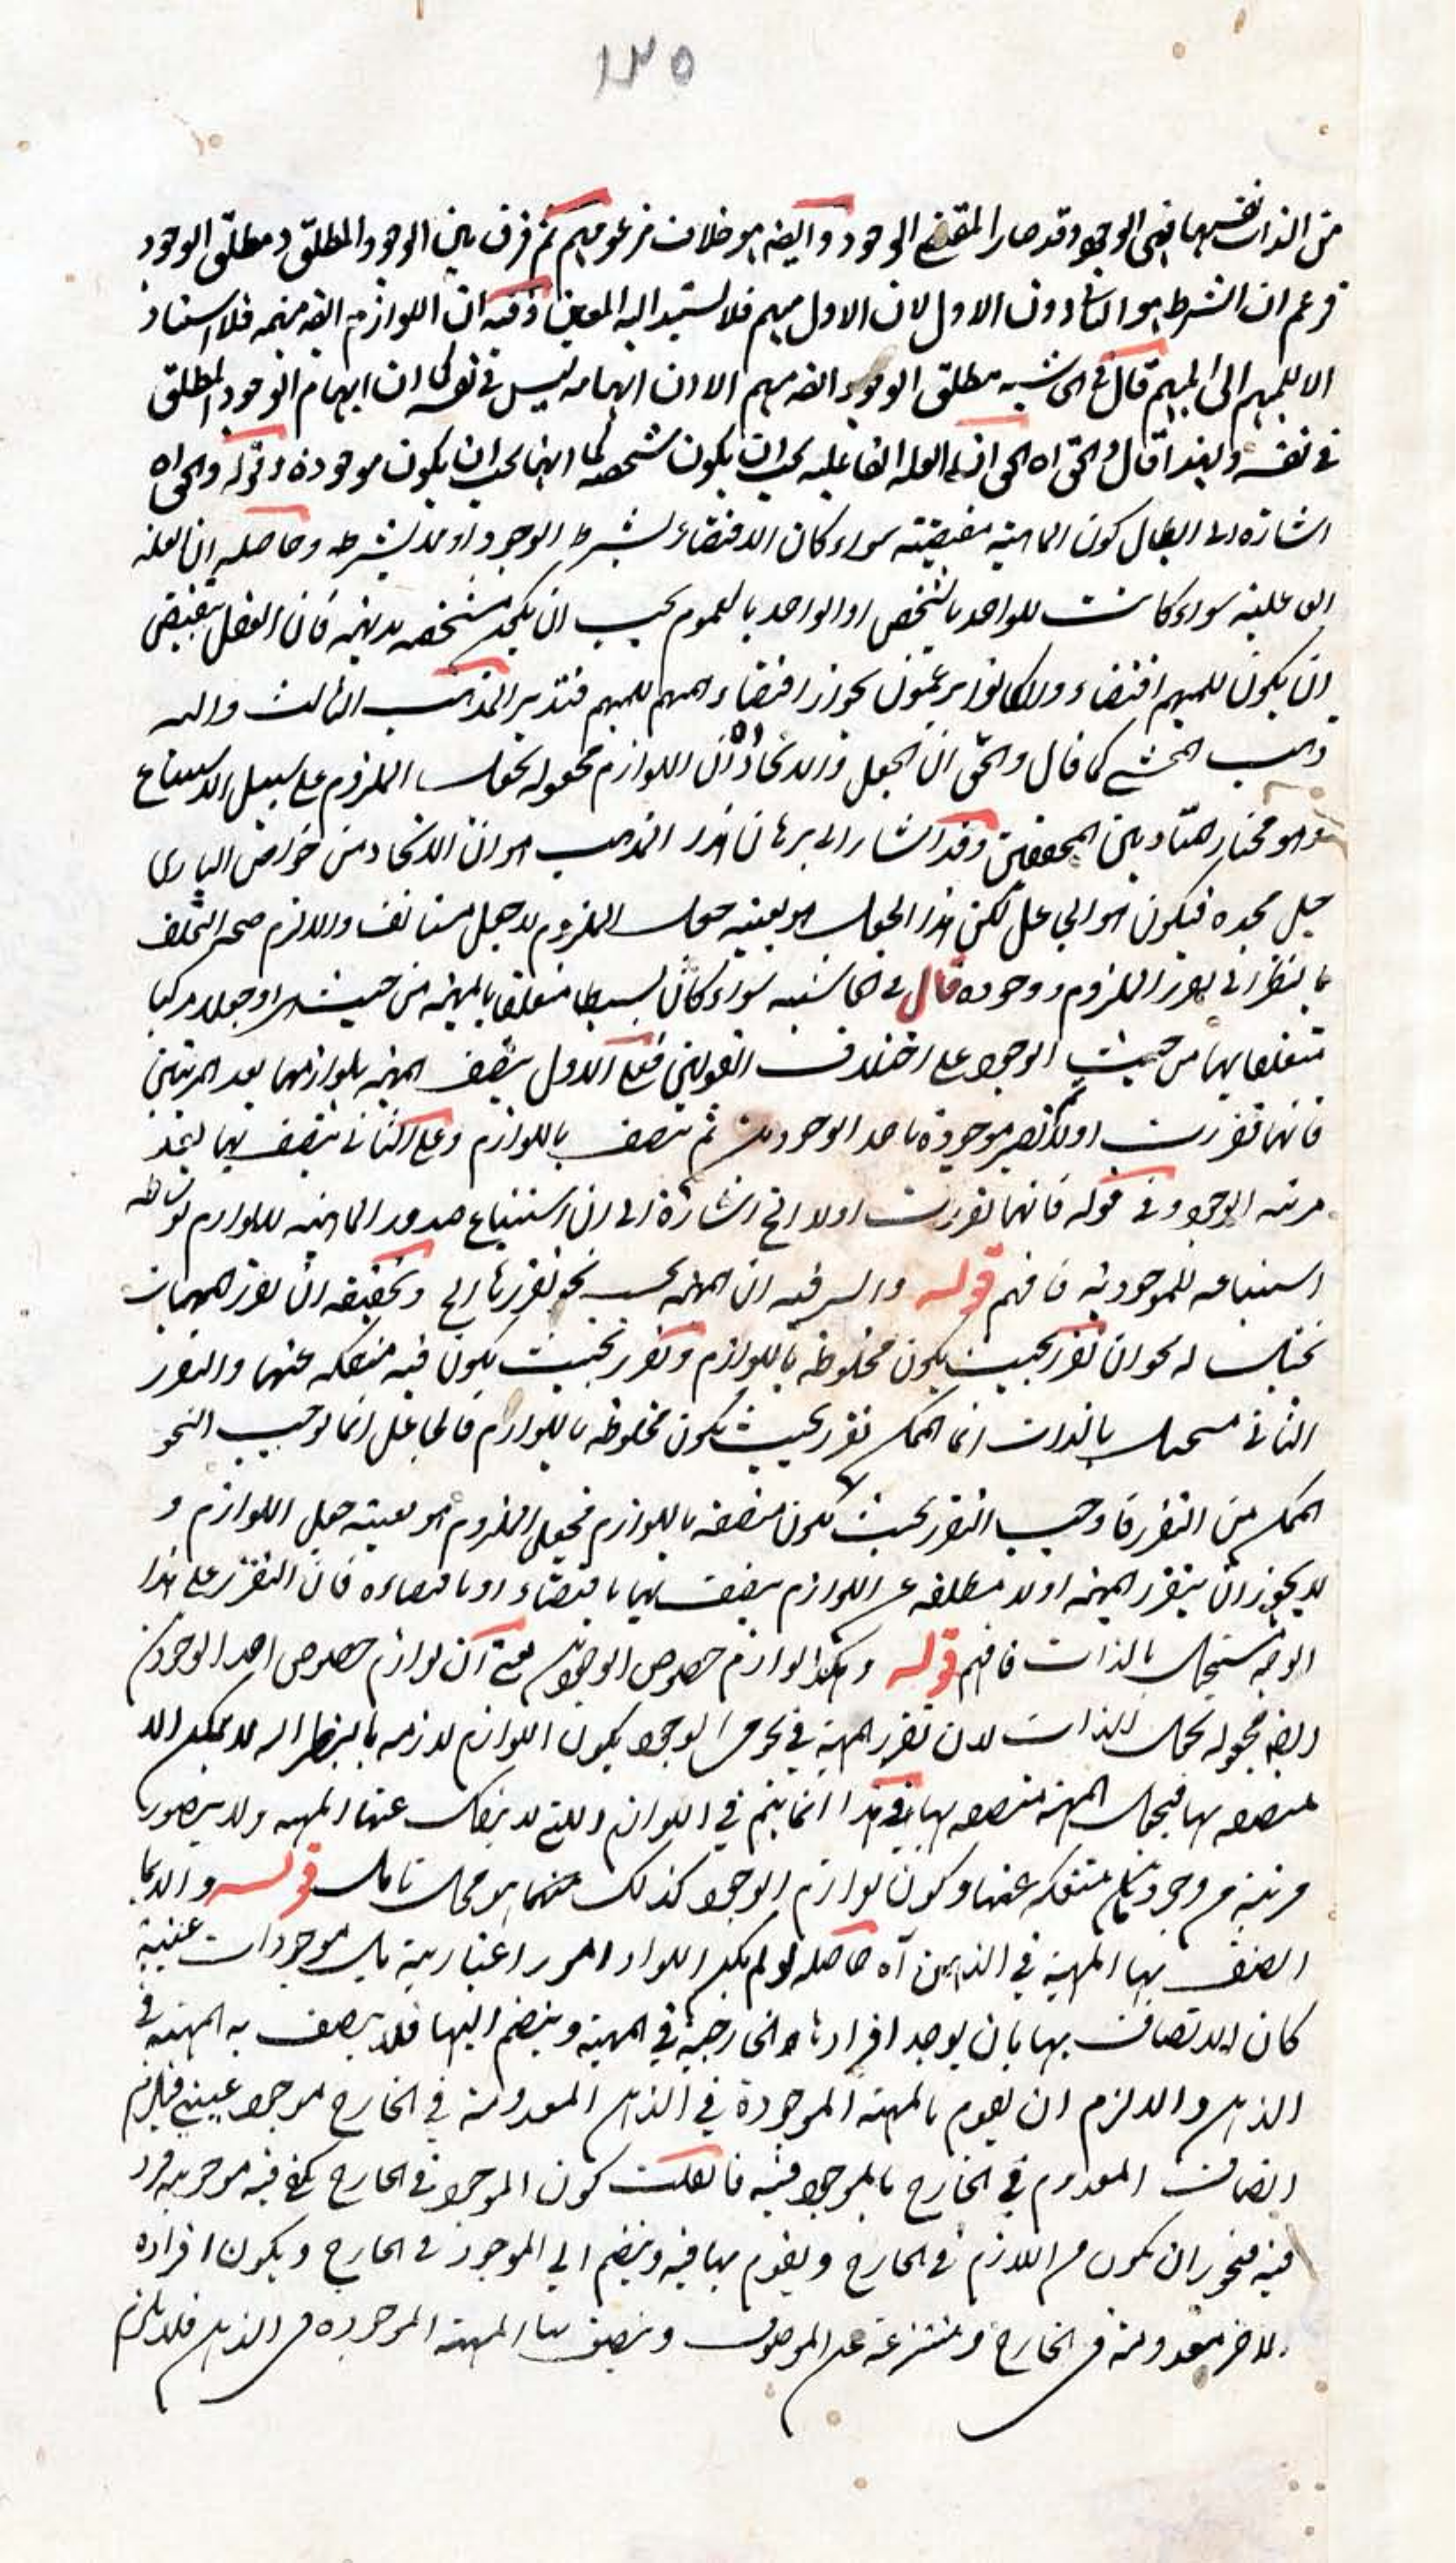 ١٣٥
من الذات نفسها فهي الوجود وقد صار المقتضي الوجود وايضه هو خلاف مزعومهم ثم فرق بين الوجود المطلق ومطلق الوجود
فزعم ان الشرط هو الثاني دون الاول لان الاول مبهم فلا يستند اليه المعين وفيه ان اللوازم ايضه مبهمه فلا استناد
الا للمبهم الى المبهم قال في الحاشيه مطلق الوجود ايضه مبهم الا ان ابهامه ليس في نفسه كما ان ابهام الوجود المطلق
في نفسه ولهذا قال والحق اه الحق ان العله الفاعليه يجب ان يكون متشخصه كما انها يجب ان يكون موجودة وقوله والحق اه
اشارة الى ابطال كون الماهية مقتضيته سواء كان الاقتضاء بشرط الوجود او لا بشرطه وحاصله ان العله
الفاعليه سواء كانت للواحد بالشخص او الواحد بالعموم يجب ان يكون متشخصه لا مبهمه فان العقل ينقبض
ان يكون للمبهم اقتضاء ولو كانوا يزعمون بجواز اقتضاء المبهم للمبهم فتدبر المذهب الثالث واليه
ذهب المحشي كما قال والحق ان الجعل والايجاد اه ان اللوازم مجعوله بجعل الملزوم على سبيل الاستتباع
وهو مختار استاد بين المحققين وقد اشار الى برهان هذا المذهب هو ان الايجاد من خواص الباري
جل مجده فيكون هو الجاعل لكن هذا الجعل هو بعينه جعل الملزوم لا جعل مستانف والا لزم صحة التخلف
بالنظر الى تقرر الملزوم ووجوده قال في الحاشيه سواء كان بسيطا متعلقا بالمهيه من حيث هي او جعلا مركبا
متعلقا بها من حيث الوجود على اختلاف القولين فعلى الاول يتصف المهيه بلوازمها بعد المرتبتين
فانها تقررت اولا ثم تصير موجودة باحد الوجودين ثم تتصف باللوازم وعلى الثاني تتصف بها بعد
مرتبه الوجود وفي قوله فانها تقررت اولا الخ اشارة الى ان استتباع صدور الماهيه للوازم بوساطه
استتباعه للموجوديه فافهم قوله والسر فيه ان المهيه بحسب نحو تقررها الخ وتحقيقه ان تقرر المهيات
بحيث له نحوان تقرر بحيث يكون مخلوطه باللوازم وتقرر بحيث يكون فيه منفكه عنها والتقرر
الثاني مستحيل بالذات انما الممكن تقرر بحيث يكون مخلوطه باللوازم فالجاعل انما يوجب النحو
الممكن من التقرر فاوجب التقرر بحيث يكون متصفه باللوازم فجعل الملزوم هو بعينه جعل اللوازم و
لا يجوز ان يتقرر المهيه اولا مطلقه عن اللوازم يتصف بها باقتضاء او باقتضاءه فان التقرر على هذا
الوجه مستحيل بالذات فافهم قوله وهكذا لوازم خصوص الوجودين يعني ان لوازم خصوص احد الوجودين
ايضه مجعوله بجعل الذات لان تقرر المهية في نحو من الوجود يكون اللوازم لازمه بالنظر اليه لا يمكن الا
متصفه بها فيجعل المهيه متصفه بها وهذا انما يتم في اللوازم اللتي لا ينفك عنها المهيه ولا يتصور
مرتبة من وجودها منفكه عنها وكون لوازم الوجود كذلك منها هو محل تامل قوله والا لما
اتصف بها المهية في الذهن آه حاصله لو لم يكن اللوازم امور اعتبارية بل موجودات عينية
كان الاتصاف بها بان يوجد افرادها الخارجية في المهية وينضم اليها فلا يتصف به المهيه في
الذهن والا لزم ان يقوم بالمهيه الموجودة في الذهن المعدومة في الخارج موجود عيني فيلزم
اتصاف المعدوم في الخارج بالموجود فيه فان قلت كون الموجود في الخارج يكفي فيه موجوديه فرد
فيه فيجوز ان يكون من اللازم في الخارج ويقوم بها فيه وينضم الى الموجود في الخارج ويكون افراده
الاخر معدومة في الخارج ومنتزعة عن الموصوف ويتصف بها المهيه الموجوده في الذهن فلا يلزم